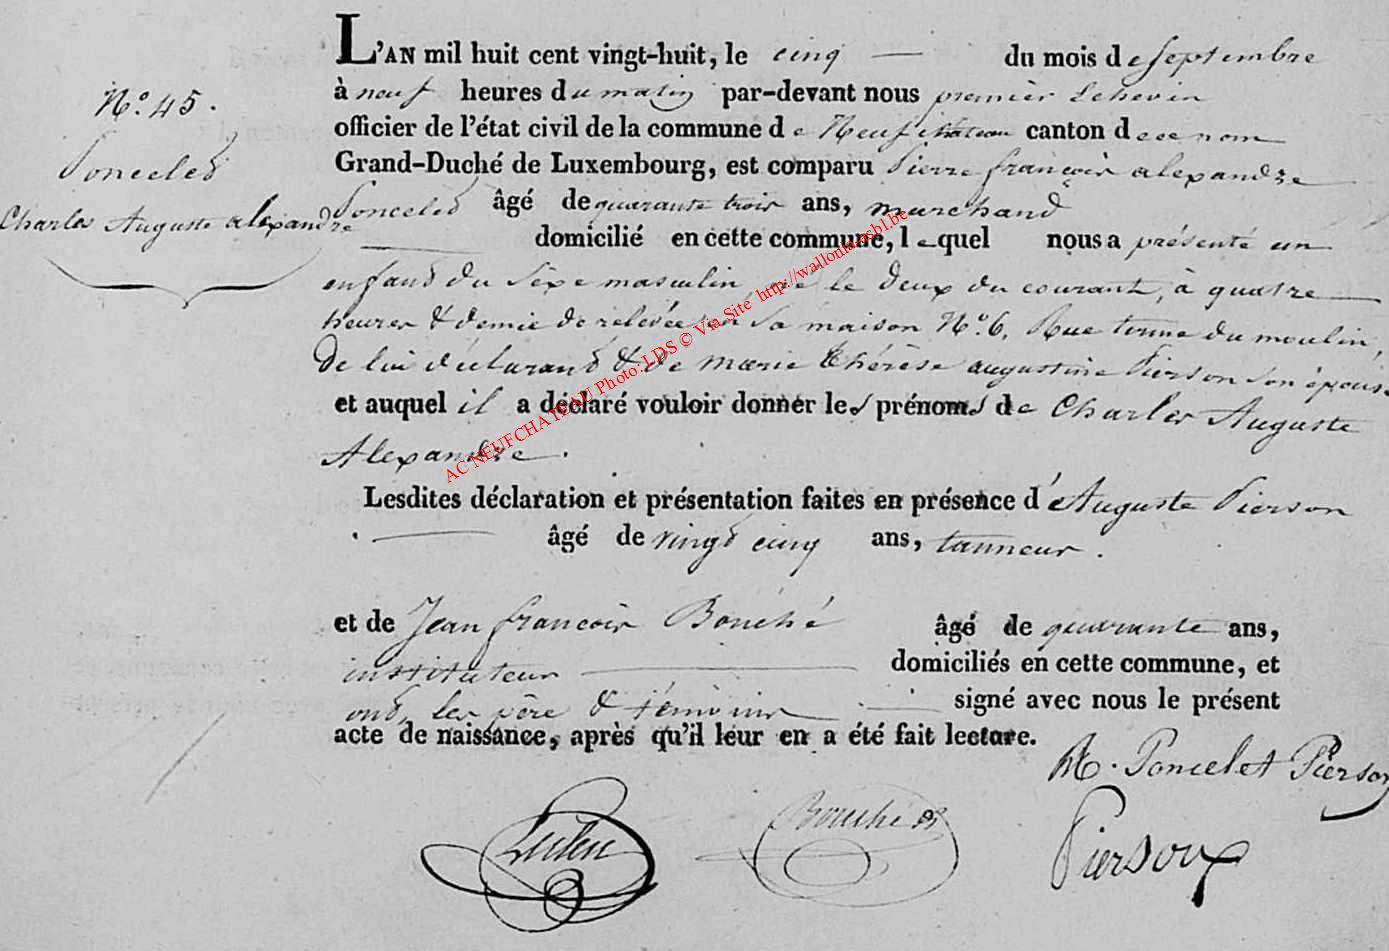 N.o 45.
Poncelet
Charles Auguste alexandre
L'AN mil huit cent vingt-huit, le cinq du mois de septembre
à neuf heures du matin par-devant nous premier Echevin
officier de l'état civil de la commune de Neufchâteau canton de ce nom
Grand-Duché de Luxembourg, est comparu Pierre françois alexandre
Poncelet âgé de quarante trois ans, marchand
domicilié en cette commune, lequel nous a présenté un
enfant du sexe masculin, né le deux du courant, à quatre
heures & demie de relevée en sa maison N.o 6, Rue terme du moulin,
de lui déclarant & de marie thérèse augustine Pierson son épouse
et auquel il a déclaré vouloir donner les prénoms de Charles Auguste
Alexandre.
Lesdites déclaration et présentation faites en présence d'Auguste Pierson
âgé de vingt cinq ans, tanneur.
et de Jean françois Bouché âgé de quarante ans,
instituteur domiciliés en cette commune, et
ont, les père & témoins signé avec nous le présent
acte de naissance, après qu'il leur en a été fait lecture.
Poncelet Pierson
Bouché
Pierson
AC NEUFCHATEAU Photo: LDS © Via Site http://wallonia-asbl.be